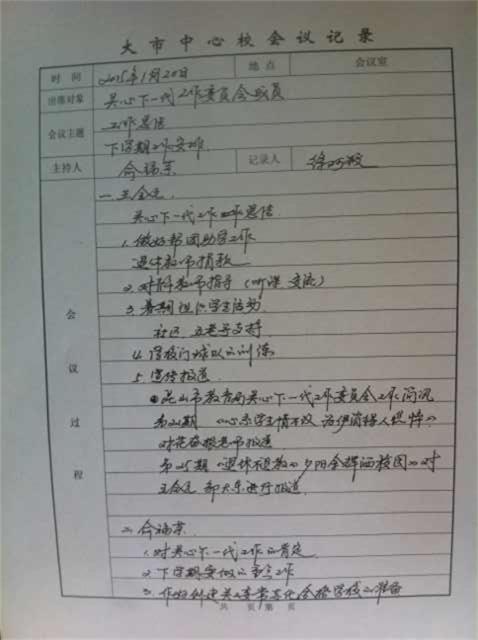 大市中心校会议记录
时间 2015年1月20日 地点 会议室
出席对象 关心下一代工作委员会成员
会议主题 工作总结
下学期工作安排
主持人 俞福荣 记录人
会议过程
一、王金之
关心下一代工作 总结
1. 做好帮困助学工作
退休教师捐款
2. 对青年教师指导（听课 交流）
3. 暑期 学生活动
社区、五老 支持
4. 学校门球队的训练
5. 宣传报道
昆山市教育局关心下一代工作委员会工作简讯
第 期 《心系学生情不改 为伊消得人憔悴》
对 老师报道
第25期《退休 夕阳余晖洒校园》对
王金之 进行报道
二、俞福荣
1. 对关心下一代工作的肯定
2. 下学期要做的 工作
3. 作好创建关工委常态化合格学校的准备
共 页 第 页